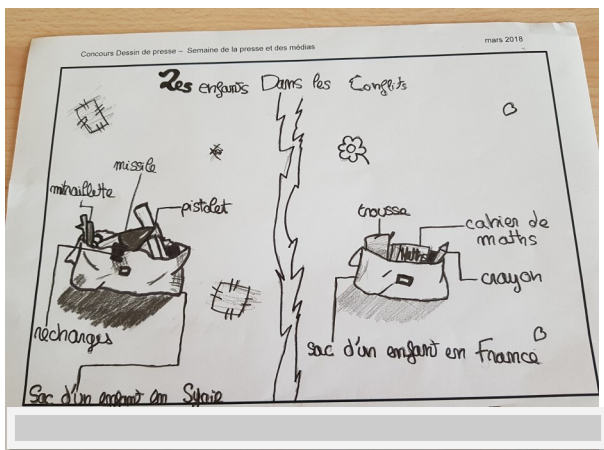 Concours Dessin de presse – Semaine de la presse et des médias
mars 2018
Les enfants Dans les Conflits
missile
mitraillette
pistolet
recharges
Sac d'un enfant en Syrie
trousse
cahier de
maths
Maths
crayon
sac d'un enfant en France